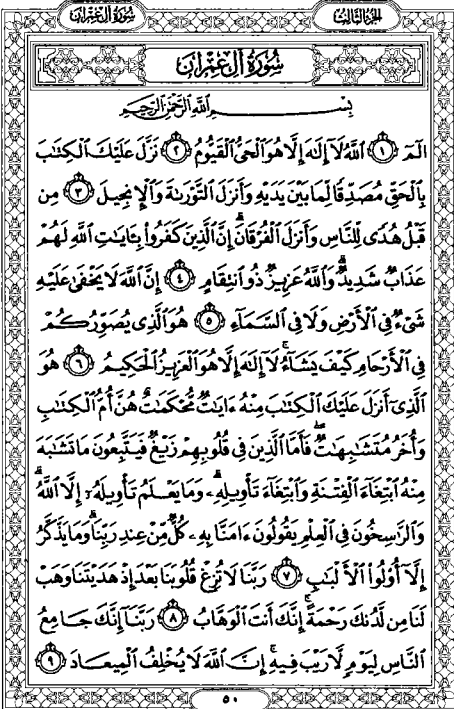 سُورَةُ آلِ عِمْرَانَ
الجُزْءُ الثَّالِثُ
سُورَةُ آلِ عِمْرَانَ
بِسْمِ ٱللَّهِ ٱلرَّحْمَٰنِ ٱلرَّحِيمِ
الٓمٓ ١ ٱللَّهُ لَآ إِلَٰهَ إِلَّا هُوَ ٱلْحَىُّ ٱلْقَيُّومُ ٢ نَزَّلَ عَلَيْكَ ٱلْكِتَٰبَ
بِٱلْحَقِّ مُصَدِّقًا لِّمَا بَيْنَ يَدَيْهِ وَأَنزَلَ ٱلتَّوْرَىٰةَ وَٱلْإِنجِيلَ ٣ مِن
قَبْلُ هُدًى لِّلنَّاسِ وَأَنزَلَ ٱلْفُرْقَانَۗ إِنَّ ٱلَّذِينَ كَفَرُوا۟ بِـَٔايَٰتِ ٱللَّهِ لَهُمْ
عَذَابٌ شَدِيدٌۗ وَٱللَّهُ عَزِيزٌ ذُو ٱنتِقَامٍ ٤ إِنَّ ٱللَّهَ لَا يَخْفَىٰ عَلَيْهِ
شَىْءٌ فِى ٱلْأَرْضِ وَلَا فِى ٱلسَّمَآءِ ٥ هُوَ ٱلَّذِى يُصَوِّرُكُمْ
فِى ٱلْأَرْحَامِ كَيْفَ يَشَآءُۚ لَآ إِلَٰهَ إِلَّا هُوَ ٱلْعَزِيزُ ٱلْحَكِيمُ ٦ هُوَ
ٱلَّذِىٓ أَنزَلَ عَلَيْكَ ٱلْكِتَٰبَ مِنْهُ ءَايَٰتٌ مُّحْكَمَٰتٌ هُنَّ أُمُّ ٱلْكِتَٰبِ
وَأُخَرُ مُتَشَٰبِهَٰتٌۖ فَأَمَّا ٱلَّذِينَ فِى قُلُوبِهِمْ زَيْغٌ فَيَتَّبِعُونَ مَا تَشَٰبَهَ
مِنْهُ ٱبْتِغَآءَ ٱلْفِتْنَةِ وَٱبْتِغَآءَ تَأْوِيلِهِۦۗ وَمَا يَعْلَمُ تَأْوِيلَهُۥٓ إِلَّا ٱللَّهُۗ
وَٱلرَّٰسِخُونَ فِى ٱلْعِلْمِ يَقُولُونَ ءَامَنَّا بِهِۦ كُلٌّ مِّنْ عِندِ رَبِّنَاۗ وَمَا يَذَّكَّرُ
إِلَّآ أُو۟لُوا۟ ٱلْأَلْبَٰبِ ٧ رَبَّنَا لَا تُزِغْ قُلُوبَنَا بَعْدَ إِذْ هَدَيْتَنَا وَهَبْ
لَنَا مِن لَّدُنكَ رَحْمَةًۚ إِنَّكَ أَنتَ ٱلْوَهَّابُ ٨ رَبَّنَآ إِنَّكَ جَامِعُ
ٱلنَّاسِ لِيَوْمٍ لَّا رَيْبَ فِيهِۚ إِنَّ ٱللَّهَ لَا يُخْلِفُ ٱلْمِيعَادَ ٩
٥٠